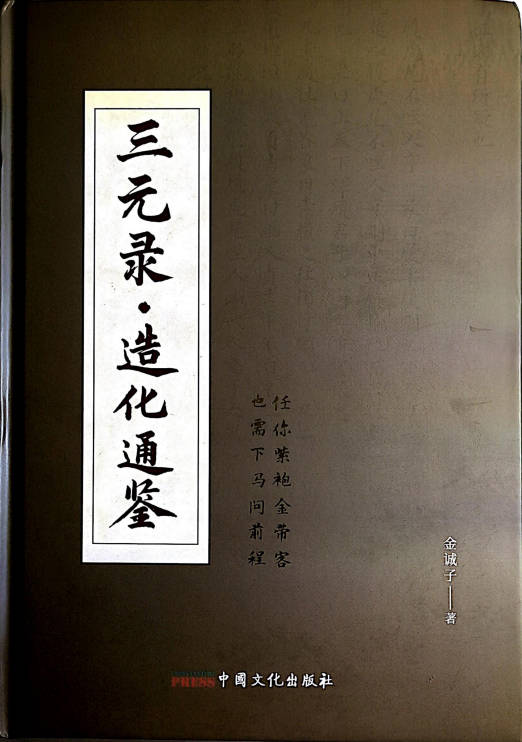 三元录·造化通鉴
任你紫袍金带客
也需下马问前程
金诚子——著
PRESS 中國文化出版社